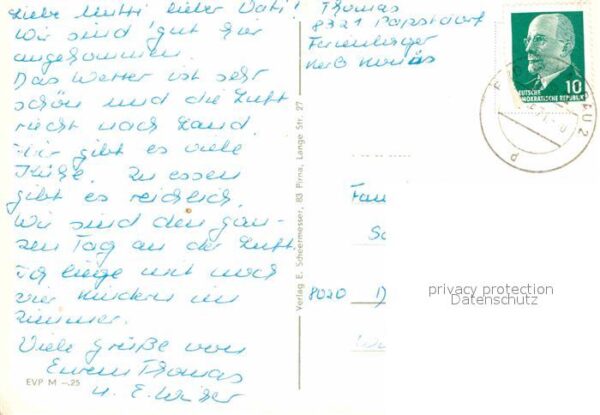 Liebe Mutti lieber Vati!
Wir sind gut hier
angekommen.
Das Wetter ist sehr
schön und die Luft
riecht nach Land.
Hir gibt es viele
Kühe. Zu essen
gibt es reichlich.
Wir sind den gan-
zen Tag an der Luft.
Ich liege mit noch
vier Kindern im
Zimmer.
Viele Grüße von
Eurem Thomas
u. E.
EVP M -.25
Verlag E. Scheermesser, 83 Pirna, Lange Str. 27
Thomas
8321 Papstdorf
Ferienlager
10
DEUTSCHE
DEMOKRATISCHE REPUBLIK
Fam
8020 D
privacy protection
Datenschutz